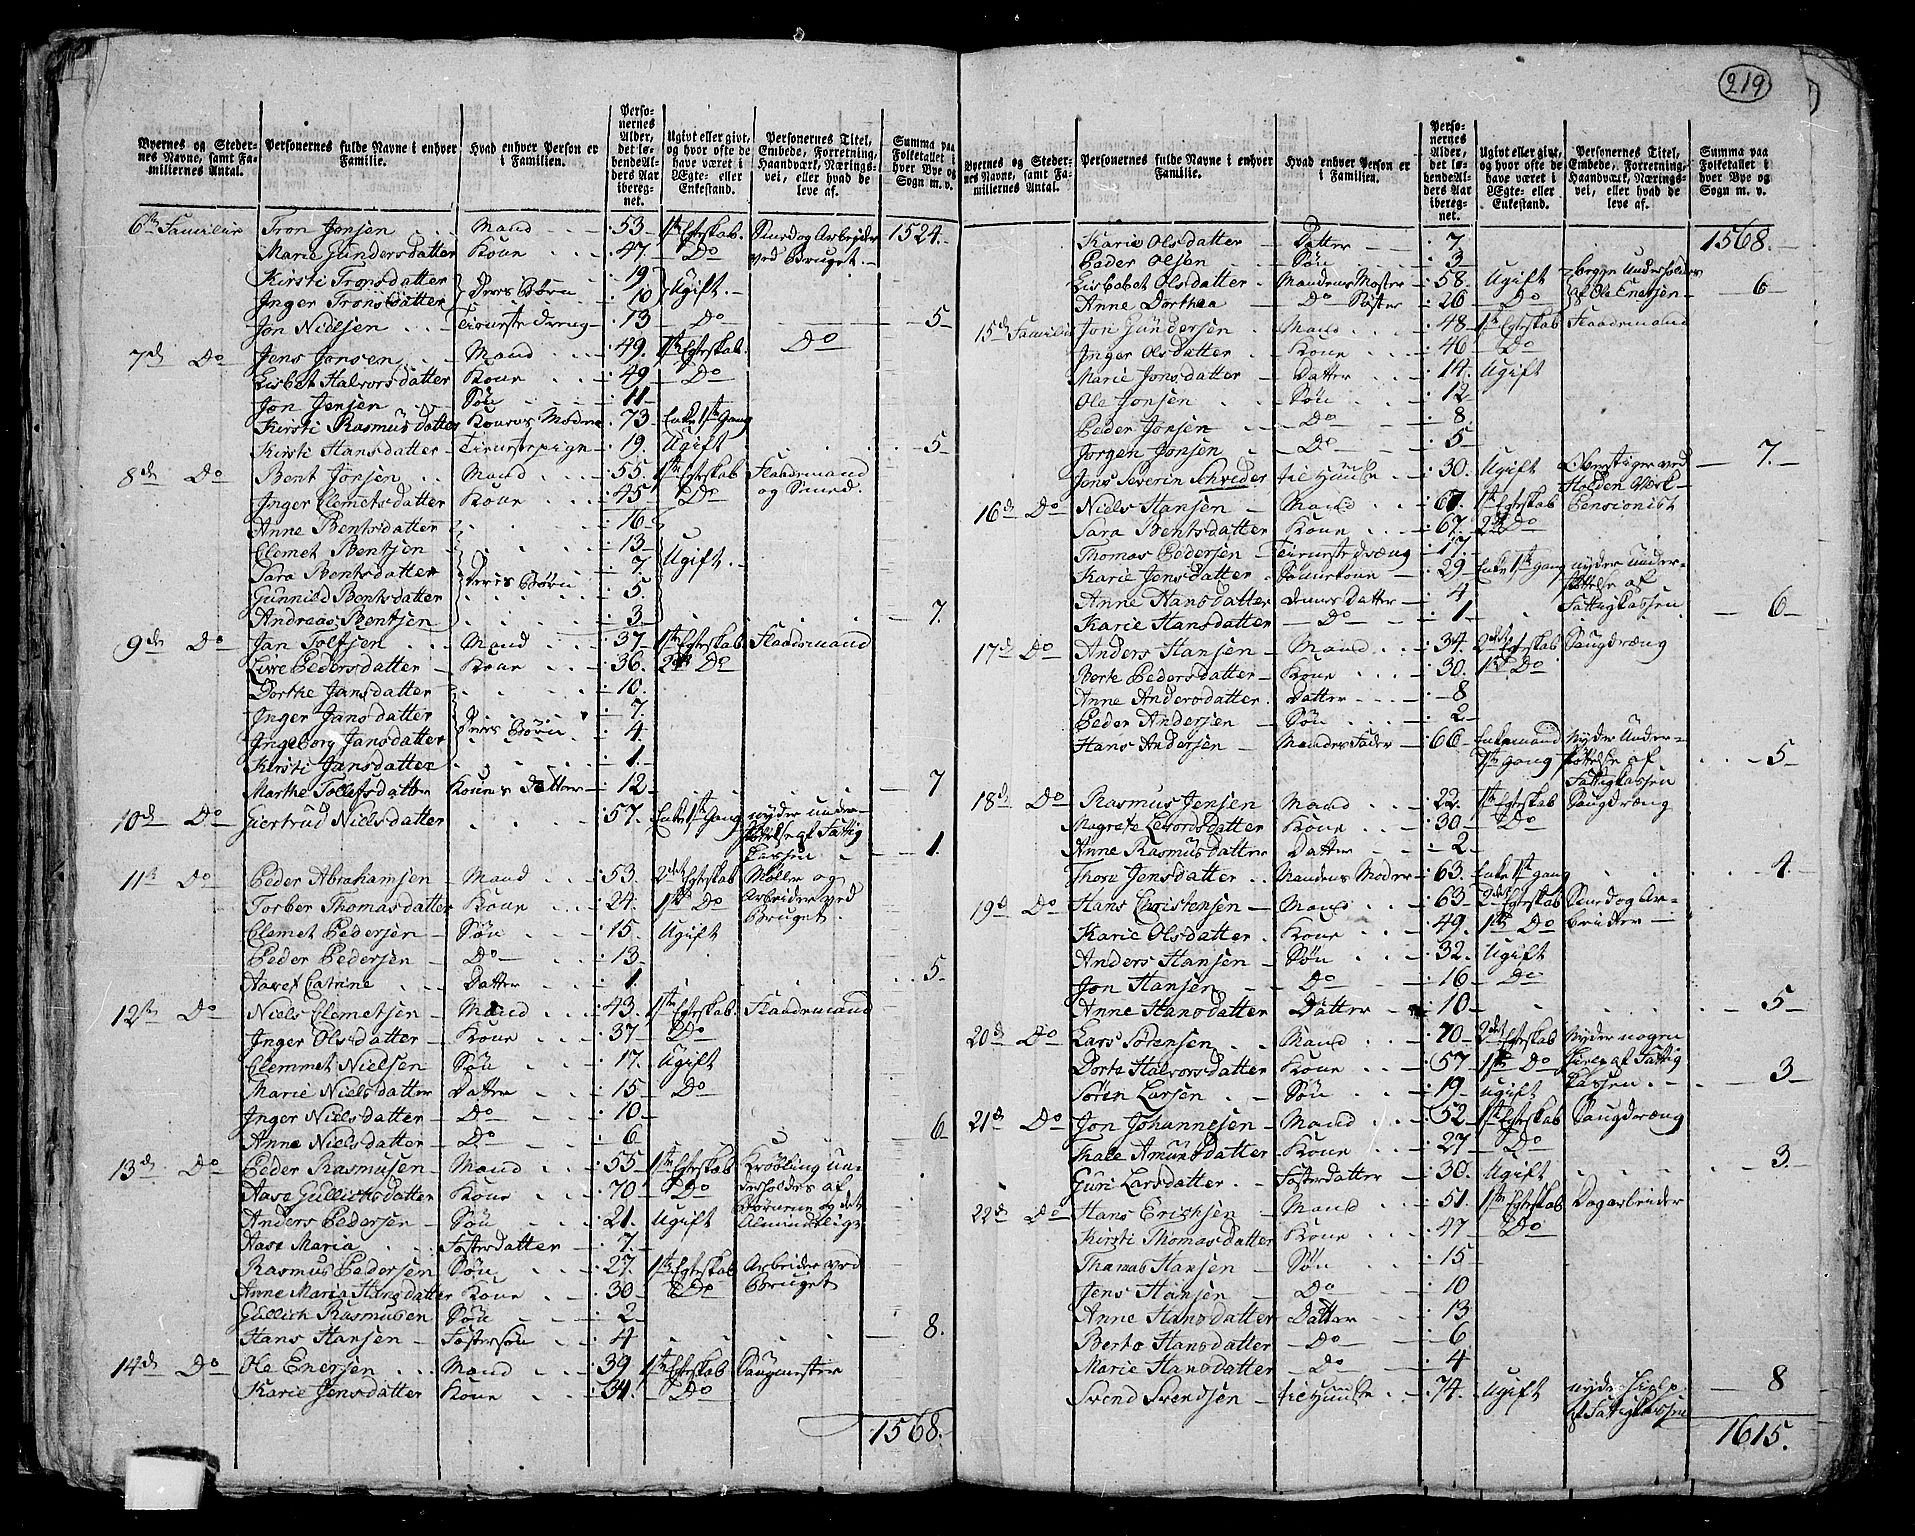 219
Byernes og Stedernes Navne, samt Familiernes Antal.
Personernes fulde Navne i enhver Familie.
Hvad enhver Person er i Familien.
Personernes Alder, det løbende Alders Aar iberegnet.
Ugivt eller givt, og hvor ofte de have været i Ægte- eller Enkestand.
Personernes Titel, Embede, Forretning, Haandværk, Næringsvei, eller hvad de leve af.
Summa paa Folketallet i hver Bye og Sogn m. v.
6te Familie Tron Jonsen Mand 53 1te Egteskab Smed og Arbeider 1524
Marie Gundersdatter Kone 47 Do ved Bruget
Kirsti Tronsdatter 19
Inger Tronsdatter Deres Børn 10 Ugift
Jon Nielsen Tieneste dreng 13 Do 5
7de Do Jens Jonsen Mand 49 1te Egteskab Do
Lisbet Halvorsdatter Kone 49 Do
Jon Jensen Søn 11
Kirsti Rasmusdatter Kones Moder 73 Enke 1te Gang
Kirsti Hansdatter Tienestepige 19 Ugift 5
8de Do Bent Jonsen Mand 55 1te Egteskab Flaademand
Inger Clemetsdatter Kone 45 Do og Smed
Anne Bentsdatter 16
Clemet Bentsen 13
Sara Bentsdatter Deres Børn 7 Ugift
Gunnild Bentsdatter 5
Andreas Bentsen 3 7
9de Do Jan Tolfsen Mand 37 1te Egteskab Flaademand
Live Pedersdatter Kone 36 2det Do
Dorthe Jansdatter 10
Inger Jansdatter 7
Ingeborg Jansdatter Deres Børn 4
Kirsti Jansdatter 1
Marthe Tollefsdatter Kones Datter 12 7
10de Do Giertrud Nielsdatter 57 Enke 1te Gang nyder under-
holdelse af Fattig
Cassen 1
11te Do Peder Abrahamsen Mand 53 2det Egteskab Møller og
Torber Thomasdatter Kone 24 1te Do Arbeider ved
Clemet Pedersen Søn 15 Ugift Bruget
Peder Pedersen Do 13
Aaret Catrine Datter 1 5
12te Do Niels Clemetsen Mand 43 1te Egteskab Flaademand
Inger Olsdatter Kone 37 Do
Clemmet Nielsen Søn 17 Ugift
Marie Nielsdatter Datter 15 Do
Inger Nielsdatter Do 10
Anne Nielsdatter Do 6 6
13de Do Peder Rasmusen Mand 55 1te Egteskab Krøbling un-
Aase Gullichsdatter Kone 70 Do derholdes af
Anders Pedersen Søn 21 Ugift Børnene og det
Aase Maria Fosterdatter 7 Almindelige
Rasmus Pedersen Søn 27 1te Egteskab Arbeider ved
Anne Maria Hansdatter Kone 30 Do Bruget
Gullich Rasmusen Søn 2
Hans Hansen Fostersøn 4 8
14de Do Ole Enersen Mand 39 1te Egteskab Saugmester
Karie Jensdatter Kone 34 Do
1568
Byernes og Stedernes Navne, samt Familiernes Antal.
Personernes fulde Navne i enhver Familie.
Hvad enhver Person er i Familien.
Personernes Alder, det løbende Alders Aar iberegnet.
Ugivt eller givt, og hvor ofte de have været i Ægte- eller Enkestand.
Personernes Titel, Embede, Forretning, Haandværk, Næringsvei, eller hvad de leve af.
Summa paa Folketallet i hver Bye og Sogn m. v.
Karie Olsdatter Datter 7 1568
Peder Olsen Søn 3
Lisbabet Olsdatter Mandens Moster 58 Ugift begge underholdes
Anne Dorthea Do Søster 26 Do af Ole Enersen 6
15de Familie Jon Gundersen Mand 48 1te Egteskab Flaademand
Inger Olsdatter Kone 46 Do
Marie Jonsdatter Datter 14 Ugift
Ole Jonsen Søn 12
Peder Jonsen Do 8
Jørgen Jonsen Do 5
Jens Severin Schrøder til Huuse 30 Ugift Overstiger ved
Holden Verk 7
16de Do Niels Hansen Mand 67 1te Egteskab Pensionist
Sara Bentsdatter Kone 67 2det Do
Thomas Pedersen Tieneste dræng 17
Karie Jensdatter Sønnekone 29 Enke 1te Gang nyder under-
Anne Hansdatter dennes Datter 4 holdelse af
Karie Hansdatter Do 1 Fattigkassen 6
17de Do Anders Hansen Mand 34 2det Egteskab Saugdræng
Berte Pedersdatter Kone 30 1te Do
Anne Andersdatter Datter 8
Peder Andersen Søn 2
Hans Andersen Mandes Fader 66 Enkemand Nyder Under-
1te Gang holdelse af 5
Fattigkassen
18de Do Rasmus Jensen Mand 22 1te Egteskab Saugdræng
Magrete Levordsdatter Kone 30 Do
Anne Rasmusdatter Datter 2
Thore Jensdatter Mandens Moder 63 Enke 1te gang 4
19de Do Hans Christensen Mand 63 2det Egteskab Smed og Ar-
Karie Olsdatter Kone 49 1te Do beider
Anders Hansen Søn 32 Ugift
Jon Hansen Do 16 Do
Anne Hansdatter Datter 10 5
20de Do Lars Sørensen Mand 70 2det Egteskab Nyder nogen
Dorte Halvorsdatter Kone 57 1te Do hielp af Fattig
Søren Larsen Søn 19 ugift Cassen 3
21de Do Jon Johannesen Mand 52 1te Egteskab Saugdræng
Kale Amundsdatter Kone 27 Do
Guri Larsdatter Fosterdatter 30 Ugift 3
22de Do Hans Erichsen Mand 51 1te Egteskab Dagarbeider
Kirsti Thomasdatter Kone 47 Do
Thomas Hansen Søn 15
Jens Hansen Do 10
Anne Hansdatter Datter 13
Berto Hansdatter Do 6
Marie Hansdatter Do 4
Svend Svendsen til Huuse 74 Ugift nyder Hielp 8
af Fattigkassen
1615